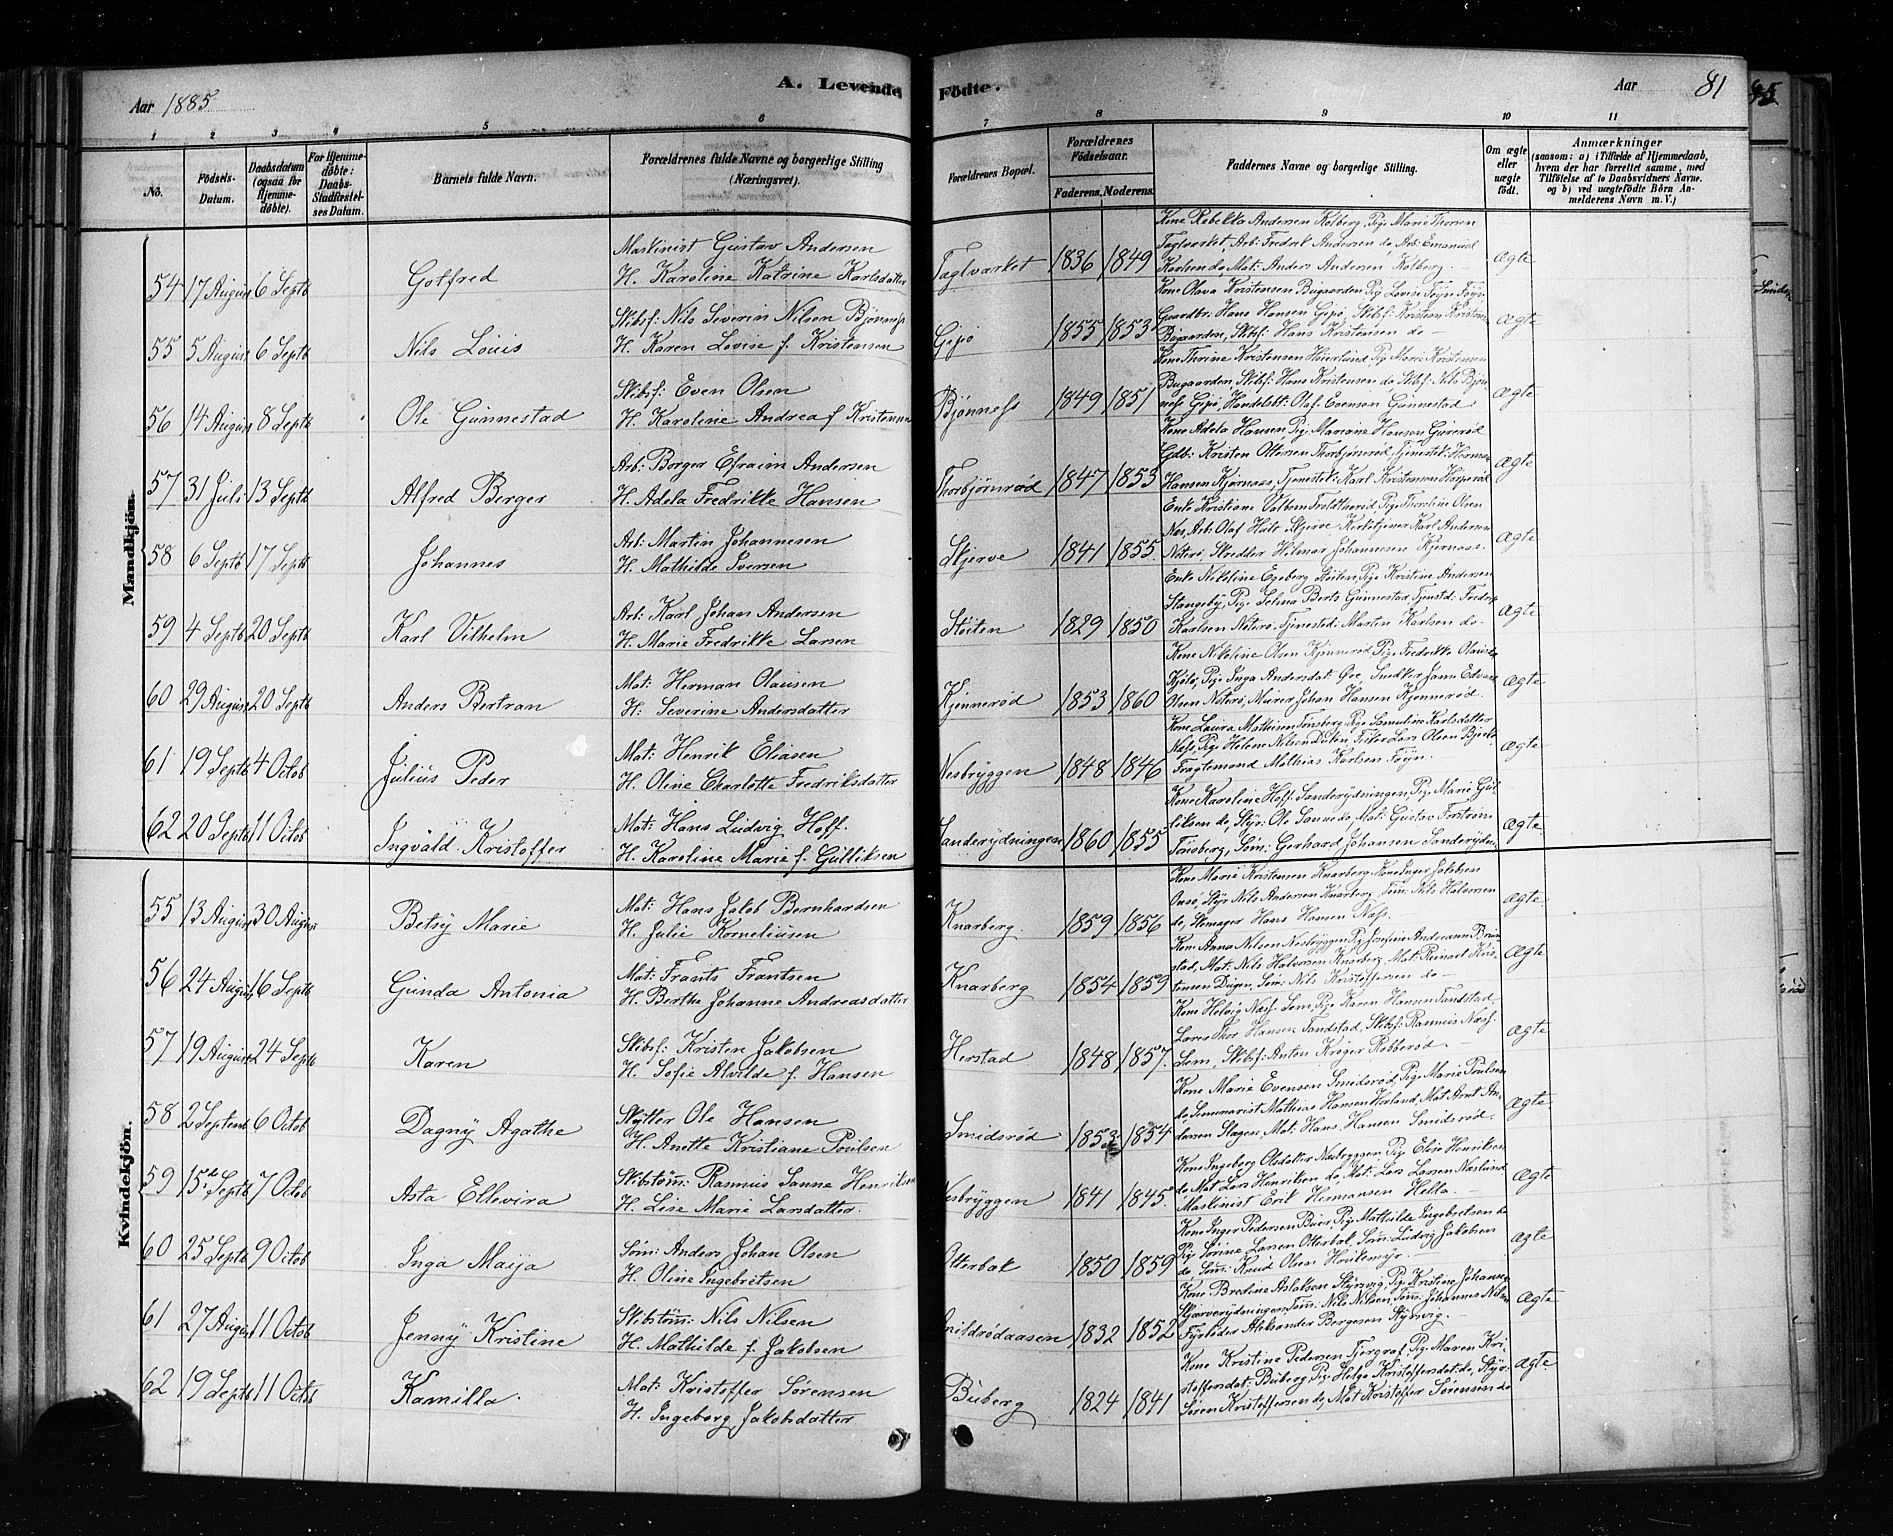 Aar 1885
A. Levende Födte.
Aar 81
1 2 3 4 5 6 7 8 9 10 11
No.
Födsels-Datum.
Daabsdatum (ogsaa for Hjemme-döbte).
For Hjemme-döbte: Daabs-Stadfæstel-ses Datum.
Barnets fulde Navn.
Forældrenes fulde Navne og borgerlige Stilling (Næringsvei).
Forældrenes Bopæl.
Forældrenes Födselsaar.
Faderens. Moderens.
Faddernes Navne og borgerlige Stilling.
Om ægte eller uægte födt.
Anmærkninger
(saasom: a) i Tilfælde af Hjemmedaab, hvem der har forrettet samme, med Tilföielse af to Daabsvidners Navne. og b) ved uægtefödte Börn An-melderens Navn m. V.)
Mandkjön.
54 17 August 6 Septb Gotfred
Maskinist Gustav Andersen
H. Karoline Katrine Karlsdatter
Taglværket 1836 1849
Kone Rebekka Andersen Kolberg, Pig. Marie Iversen
Taglværket, Arb: Fredrik Andersen do, Arb: Emanuel
Karlsen do, Mat: Anders Andersen Kolberg. —
Ægte
55 5 August 6 Septb Nils Louis
Skibsf: Nils Severin Nilsen Bjønness
H. Karen Lovise f. Kristensen
Gipø 1855 1853
Kone Olava Kristensen Bugaarden, Pig. Lovise Føyn Føyn
Gaardbr: Hans Hansen Gipø, Skibsf: Kristen Kristensen
Bugaarden, Skibsf: Hans Kristensen do —
Ægte
56 14 August 8 Septb Ole Gunnestad
Skibsf: Even Olsen
H. Karoline Andrea f. Kristensen
Bjønness 1849 1851
Kone Thrine Kristensen Huserlund, Pig. Marie Kristensen
Bugaarden, Skibsf: Hans Kristensen do Skibsf: Nils Bjøn-
ness Gipø, Handelsbt: Olaf Evensen Gunnestad
Ægte
57 31 Juli 13 Septb Alfred Berger
Arb: Borger Efraim Andersen
H. Adela Fredrikke Hansen
Thorbjørnrød 1847 1853
Kone Adela Hansen, Pig. Mariane Hansen
Gdb: Kristen Ottersen Thorbjørnrød, Tjenestk: Herman
Hansen Kjørnaas, Tjenestk: Karl Kristensen
Ægte
58 6 Septb 17 Septb Johannes
Arb: Martin Johannesen
H. Mathilde Iversen
Skjerve 1841 1855.
Enke Kristiane, Pig. Thoroline Olsen
Næs, Arb: Olaf Skjerve, Kirketjener Karl Andersen
Nøterø, Skredder Hilmar Johannesen Kjernaas.
Ægte
59 4 Septb 20 Septb Karl Vilhelm
Arb: Karl Johan Andersen
H. Marie Fredrikke Larsen
Støiten 1829 1850
Enke Nikoline Egeberg Støiten, Pige Kristine Andersen
Stangeby, Pige Selina Berts Gunnestad, Tjenstd: Fredrik
Karlsen Nøterø, Tjenestd: Martin Karlsen do.
Ægte
60 29 August 20 Septb Anders Bertran
Mat: Herman Olausen
H. Severine Andersdatter
Kjønnerød 1853 1860
Kone Nikoline Olsen Kjønnerød, Pige Fredrikke
Kjøle, Pige Inga Andersdat: Øre, Snedker Jann Edvard
Olsen Nøterø, Murer Johan Hansen Kjønnerød.
Ægte
61 19 Septb 4 Octob Julius Peder
Mat: Henrik Eliasen
H. Oline Charlotte Fredriksdatter
Nesbryggen 1848 1846
Kone Laura Mathisen Tønsberg, Pige Samuline Karlsdatter
Næss, Pige Helene Nilsen, Fisker Lars Olsen
Fragtemand Mathias Karlsen Føyn.
Ægte
62 20 Septb 11 Octob Ingvald Kristoffer
Mat: Hans Ludvig Hoff.
H. Karoline Marie f. Gulliksen
Sanderydningen 1860 1855
Kone Karoline Hoff Sanderydningen, Pige Marie Gul-
liksen do, Styr: Ole Sanne do, Mat: Gustav
Tønsberg, Søm: Gerhard Johansen Sanderydn:
Ægte
Kvindekjön.
55 13 August 30 August Betsy Marie
Mat: Hans Jakob Bernhardsen
H. Julie Korneliusen
Knarberg 1859 1856
Kone Marie Kristensen Knarberg, Kone Inger Jakobsen
Oasø, Styr Nils Andersen Knarberg, Søm: Nils Halvorsen
do, Skomager Hans Hansen Næss.
Ægte
56 24 August 6 Septb Gunda Antonia
Mat: Frants Frantsen
H. Berthe Johanne Andreasdatter
Knarberg 1854 1859
Kone Anna Nilsen Nesbryggen, Pig. Josefine Andersen
stad, Mat: Nils Halvorsen Knarberg, Mat: Reinart Kris-
tensen, Søm: Nils Kristoffersen do —
Ægte
57 19 August 24 Septb Karen
Skibsf: Kristen Jakobsen
H. Sofie Alvilde f. Hansen
Herstad 1848 1857.
Kone Helvig Næss Sem, Pige Karen Hansen Tandstad,
Thor Hansen Tandstad, Skibsf: Rasmus Næss
Sem, Skibsf: Anton Krøger Robberød. —
Ægte
58 2 Septemb 6 Octob Dagny Agathe
Skytter Ole Hansen
H. Anette Kristiane Poulsen
Smidsrød 1853 1854
Kone Marie Evensen Smidsrød, Pige Marie Poulsen
do, Seminarist Mathias Hansen, Mat: Arnt An-
dersen Slagen, Mat: Hans Hansen Smidsrød.
Ægte
59 15de Septb 7 Octob Asta Ellevina
Skibstøm: Rasmus Sanne Henriksen
H. Lise Marie Larsdatter.
Nesbryggen 1841 1845.
Kone Ingeborg Olsdatter Nesbryggen, Pig. Elise Henriksen
do, Mat: Lars Henriksen do, Mat: Lars Larsen Næslund
Maskinist Erik Hermansen Hella. —
Ægte
60 25 Septb 9 Octob Inga Maija
Søm: Anders Johan Olsen
H. Oline Ingebretsen
Otterbæk 1850 1859
Kone Inger Pedersen Buer, Pig. Mathilde Ingebretsen do
Pig. Sørine Larsen Otterbæk, Søm: Ludvig Jakobsen
do, Søm: Knud Olsen —
Ægte
61 27 August 11 Octob Jenny Kristine
Skibstøm: Nils Nilsen
H. Mathilde f. Jakobsen
Smidsrødaasen 1832 1852
Kone Bredine Aslaksen, Pig. Kristine Johannes
Skjærverydningen, Tøm: Nils Nilsen, Tøm: Johannes Nilsen
Aleksander Bergesen —
Ægte
62 19 Septb 11 Octob Kamilla
Mat: Kristoffer Sørensen
H. Ingeborg Jakobsdatter
Buberg 1824 1841
Kone Kristine Pedersen, Pig. Maren Kri-
stoffersdat: Buberg, Pig. Helga Kristoffersdat: do, Styr:
Søren Kristoffersen do, Mat: Kristoffer Sørensen do
Ægte